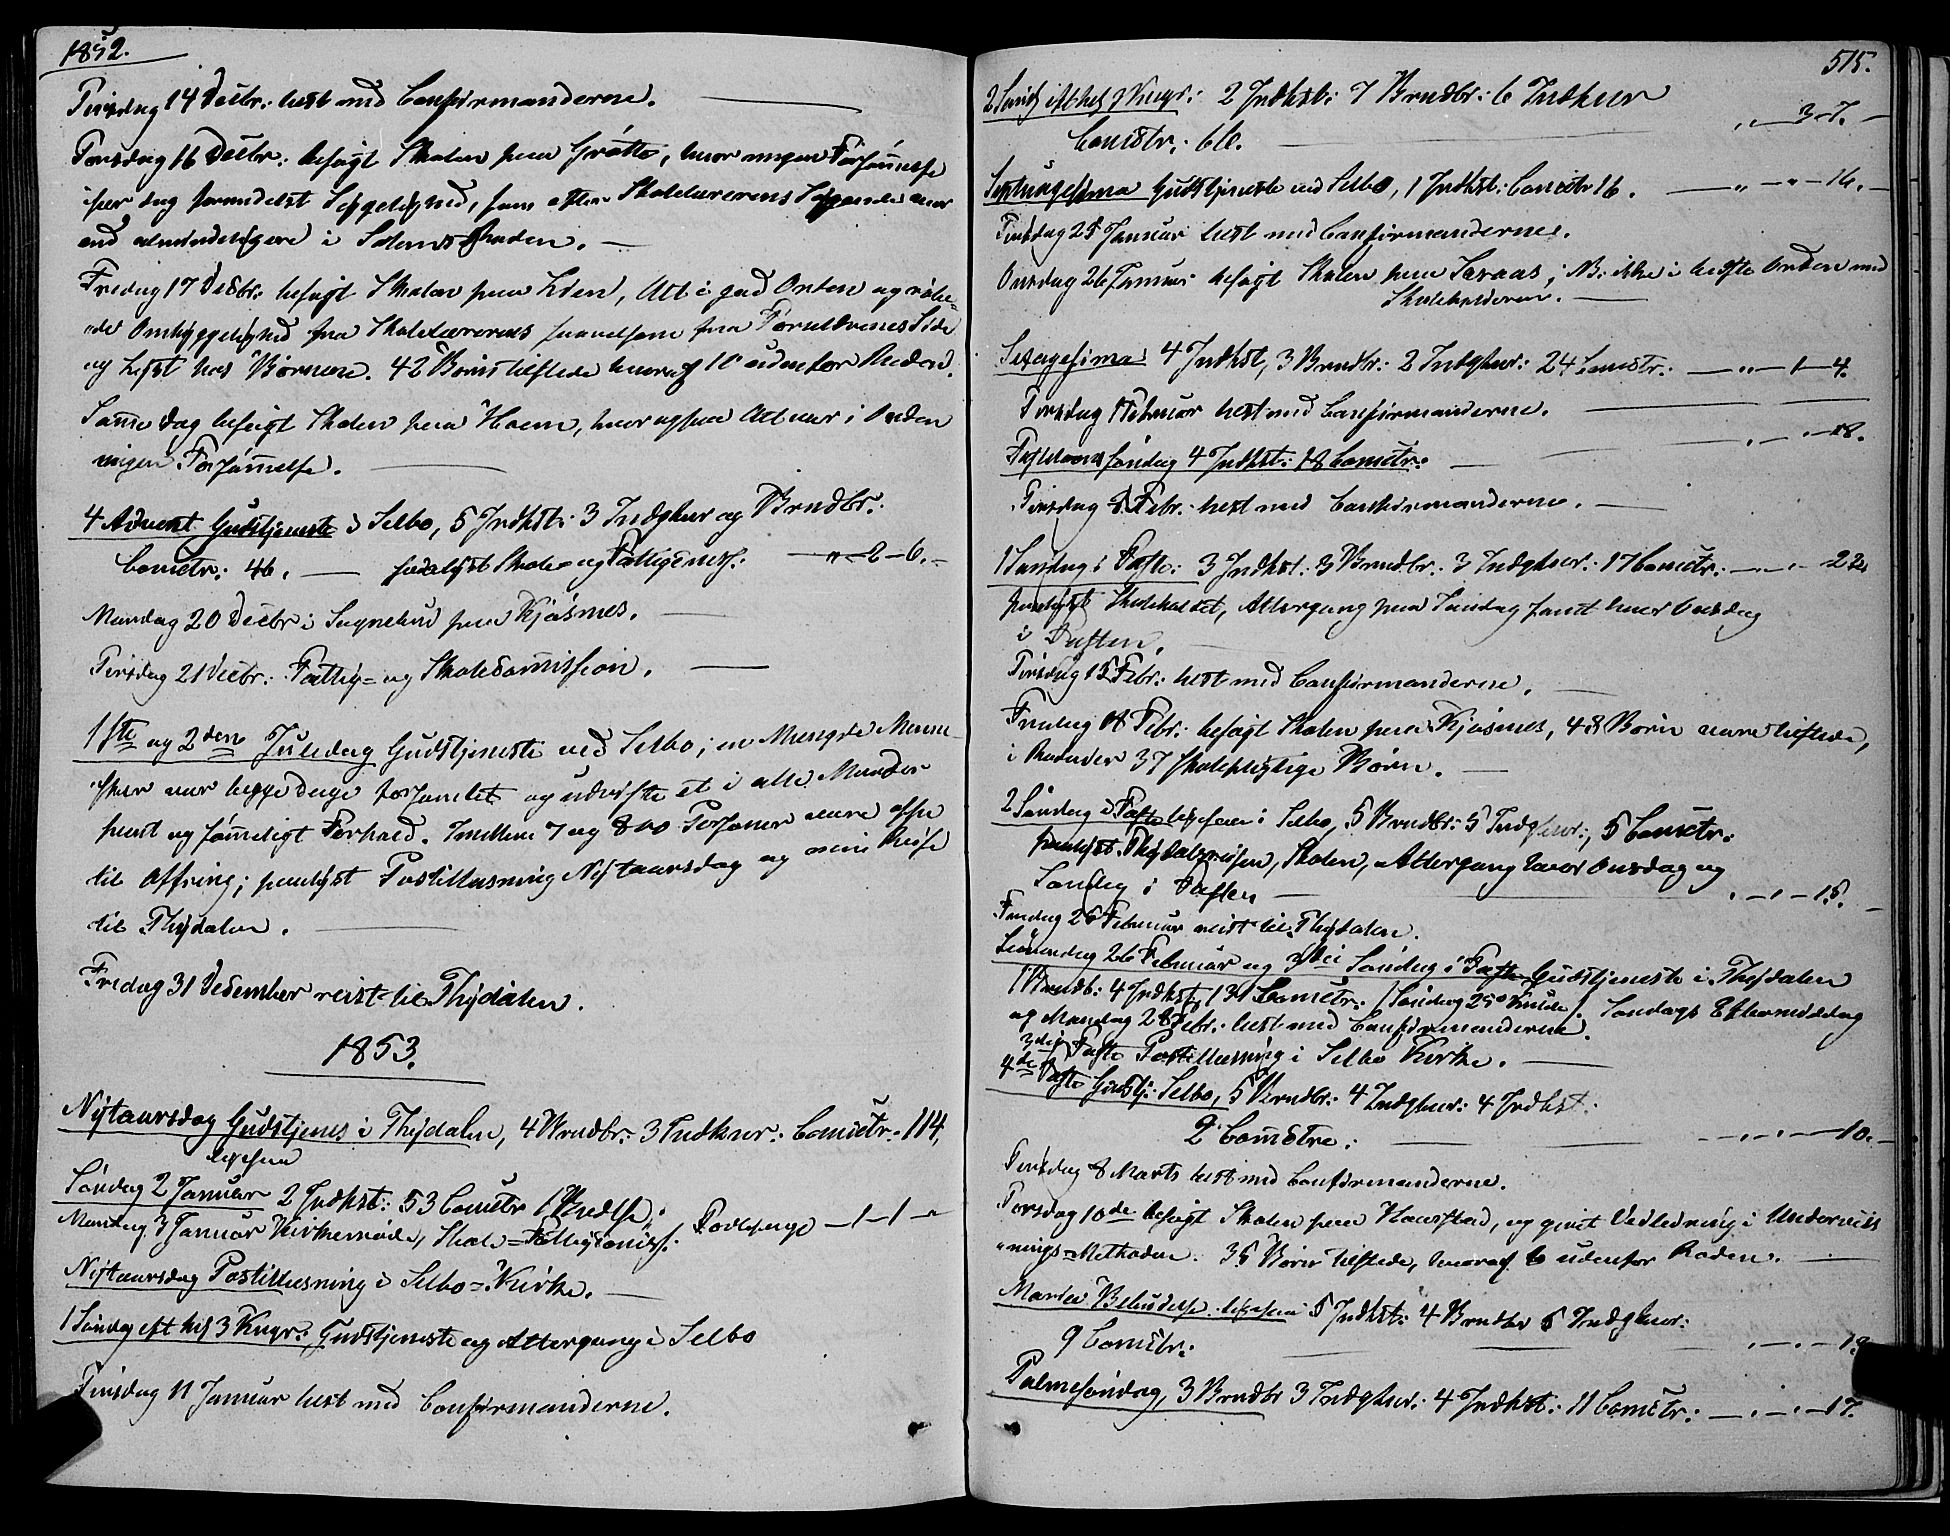 1852.
Tirsdag 14 Decbr: læst med Confirmanderne.
Torsdag 16 Decbr: besøgt Skolen paa Grøtte, hvor ingen Forsømmelse
især dag formedelst Sygelighed, som efter Skolelærerens Sigende var
end almindeligere i Roden.
Fredag 17 Decbr: besøgt Skolen paa Lien, Alt i god Orden og
Omhyggelighed fra Skolelærerens saavelsom fra Forældrenes Side
og Lyst hos Børnene. 42 Børn tilstede hvoraf 10 udenfor Roden.
Samme Dag besøgt Skolen paa Moen, hvor ogsaa Alt var i Orden
ingen Forsømmelse.
4 Advent Gudstjeneste i Selbo, 5 Indkst: 3 Indghur og Brudbr:
Comctr: 46. — Skole og Fattigcomss: — " — 2 — 6. —
Mandag 20 Decbr i Sognebud paa Kjøsnes. —
Tirsdag 21 Decbr: Fattig= og Skolecomission. —
1ste og 2den Juledag Gudstjeneste ved Selbo; en Mængde Menne-
sker var begge Dage forsamlet og udviste et i alle Maader
pent og sømmeligt Forhold. Imellem 7 og 800 Personer vare oppe
til Offring; panlyst Postillæsning Nytaarsdag og min Reise
til Thydalen. —
Fredag 31 December reist til Thydalen.
1853.
Nytaarsdag Gudstjenes i Thydalen, 4 Brudbr: 3 Indkur: Comctr: 114,
ligesaa
Søndag 2 Januar 2 Indkst: 53 Comctr 1
Mandag 3 Januar Kirkemøde, Skole= Fattigcomiss: — 1 — 1 — "
Nytaarsdag Postillæsning i Selbo=Kirke. —
1 Søndag eft hel 3 Kngr: Gudstjeneste og Altergang i Selbo
Tirsdag 11 Januar læst med Confirmanderne.
515.
2 Sønd eft hel 3 Kngr: 2 Indkst: 7 Brudbr: 6 Indkur
Comctr: 60. — " — 3 - 7. —
Septuagesima Gudstjeneste ved Selbo, 1 Indkst: Comctr 16. — " — " — 16. —
Tirsdag 25 Januar læst med Confirmanderne.
Onsdag 26 Januar besøgt Skolen paa Aaraas; NB: ikke i bedste Orden med
Skoleholderen. —
Sexagesima 4 Indkst, 3 Brudbr: 2 Indghur: 24 Comctr: — " — 1 — 4.
Tirsdag 1 Februar læst med Confirmanderne. —
Fastelavns søndag 4 Indkst: 18 Comctr: — " — " — 18.
Tirsdag 8 Febr: læst med Confirmanderne. —
1 Søndag i Faste: 3 Indkst: 3 Brudbr: 3 Indghur: 17 Comctr: — " — " — 22
panlyst Skoleholdet, Altergang paa Søndag samt hver Onsdag
i Fasten. —
Tirsdag 15 Febr: læst med Confirmanderne. —
Fredag 18 Febr: besøgt Skolen paa Kjøsnes, 48 Børn vare tilstede,
i Roden er 37 skolepligtige Børn. —
2 Søndag i Faste ligesaa i Selbo, 5 Brudbr: 5 Indghur:, 5 Comctr:
panlyst Thydalsreisen, Skolen, Altergang hver Onsdag og
Søndag i Fasten — " — " — 15. —
Fredag 25 Februar reist til Thydalen.
Løverdag 26 Februar og 3die Søndag i Faste Gudstjeneste i Thydalen
1 Brudb: 4 Indkst, 131 Comctr: (Søndag 25° Kulde). Søndags Eftermiddag
og Mandag 28 Febr: læst med Confirmanderne.
3die Faste Postillæsning i Selbo Kirke. —
4de Faste Gudstj: Selbo, 5 Brudbr: 4 Indghur: 4 Indkst:
2 Comctre: — " — " — 10. —
Tirsdag 8 Marts læst med Confirmanderne.
Torsdag 10de besøgt Skolen paa Hansstad, og givet Veiledning i Underviis
nings=Methoden. 35 Børn tilstede, hvoraf 6 udenfor Roden. —
Mariæ Bebudelse: ligesaa 5 Indkst: 4 Brudbr 5 Indghur:
9 Comctr: — " — " — 19
Palmesøndag, 3 Brudbr 3 Indghur: 4 Indkst: 11 Comctr: — " — " — 17.